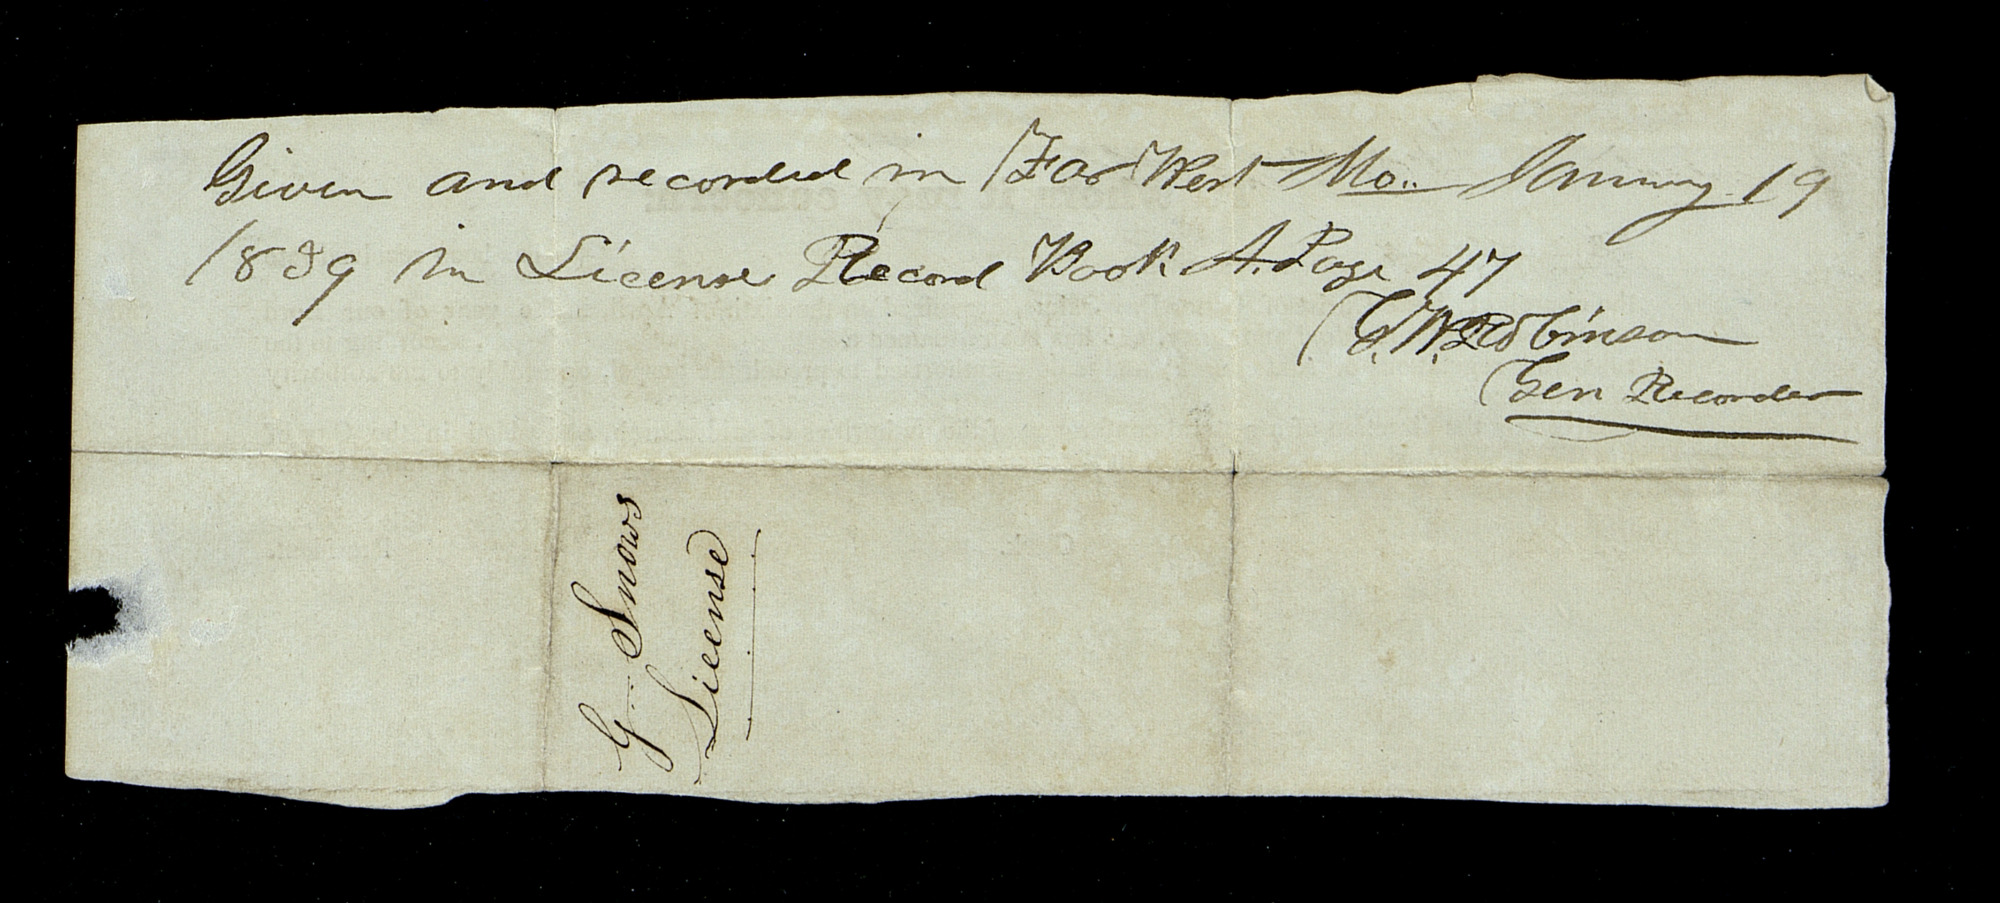 Given and recorded in Far West Mo. January 19
1839 in License Record Book A. Page 47
G. W. Robinson
Gen Recorder
G. Snows
License